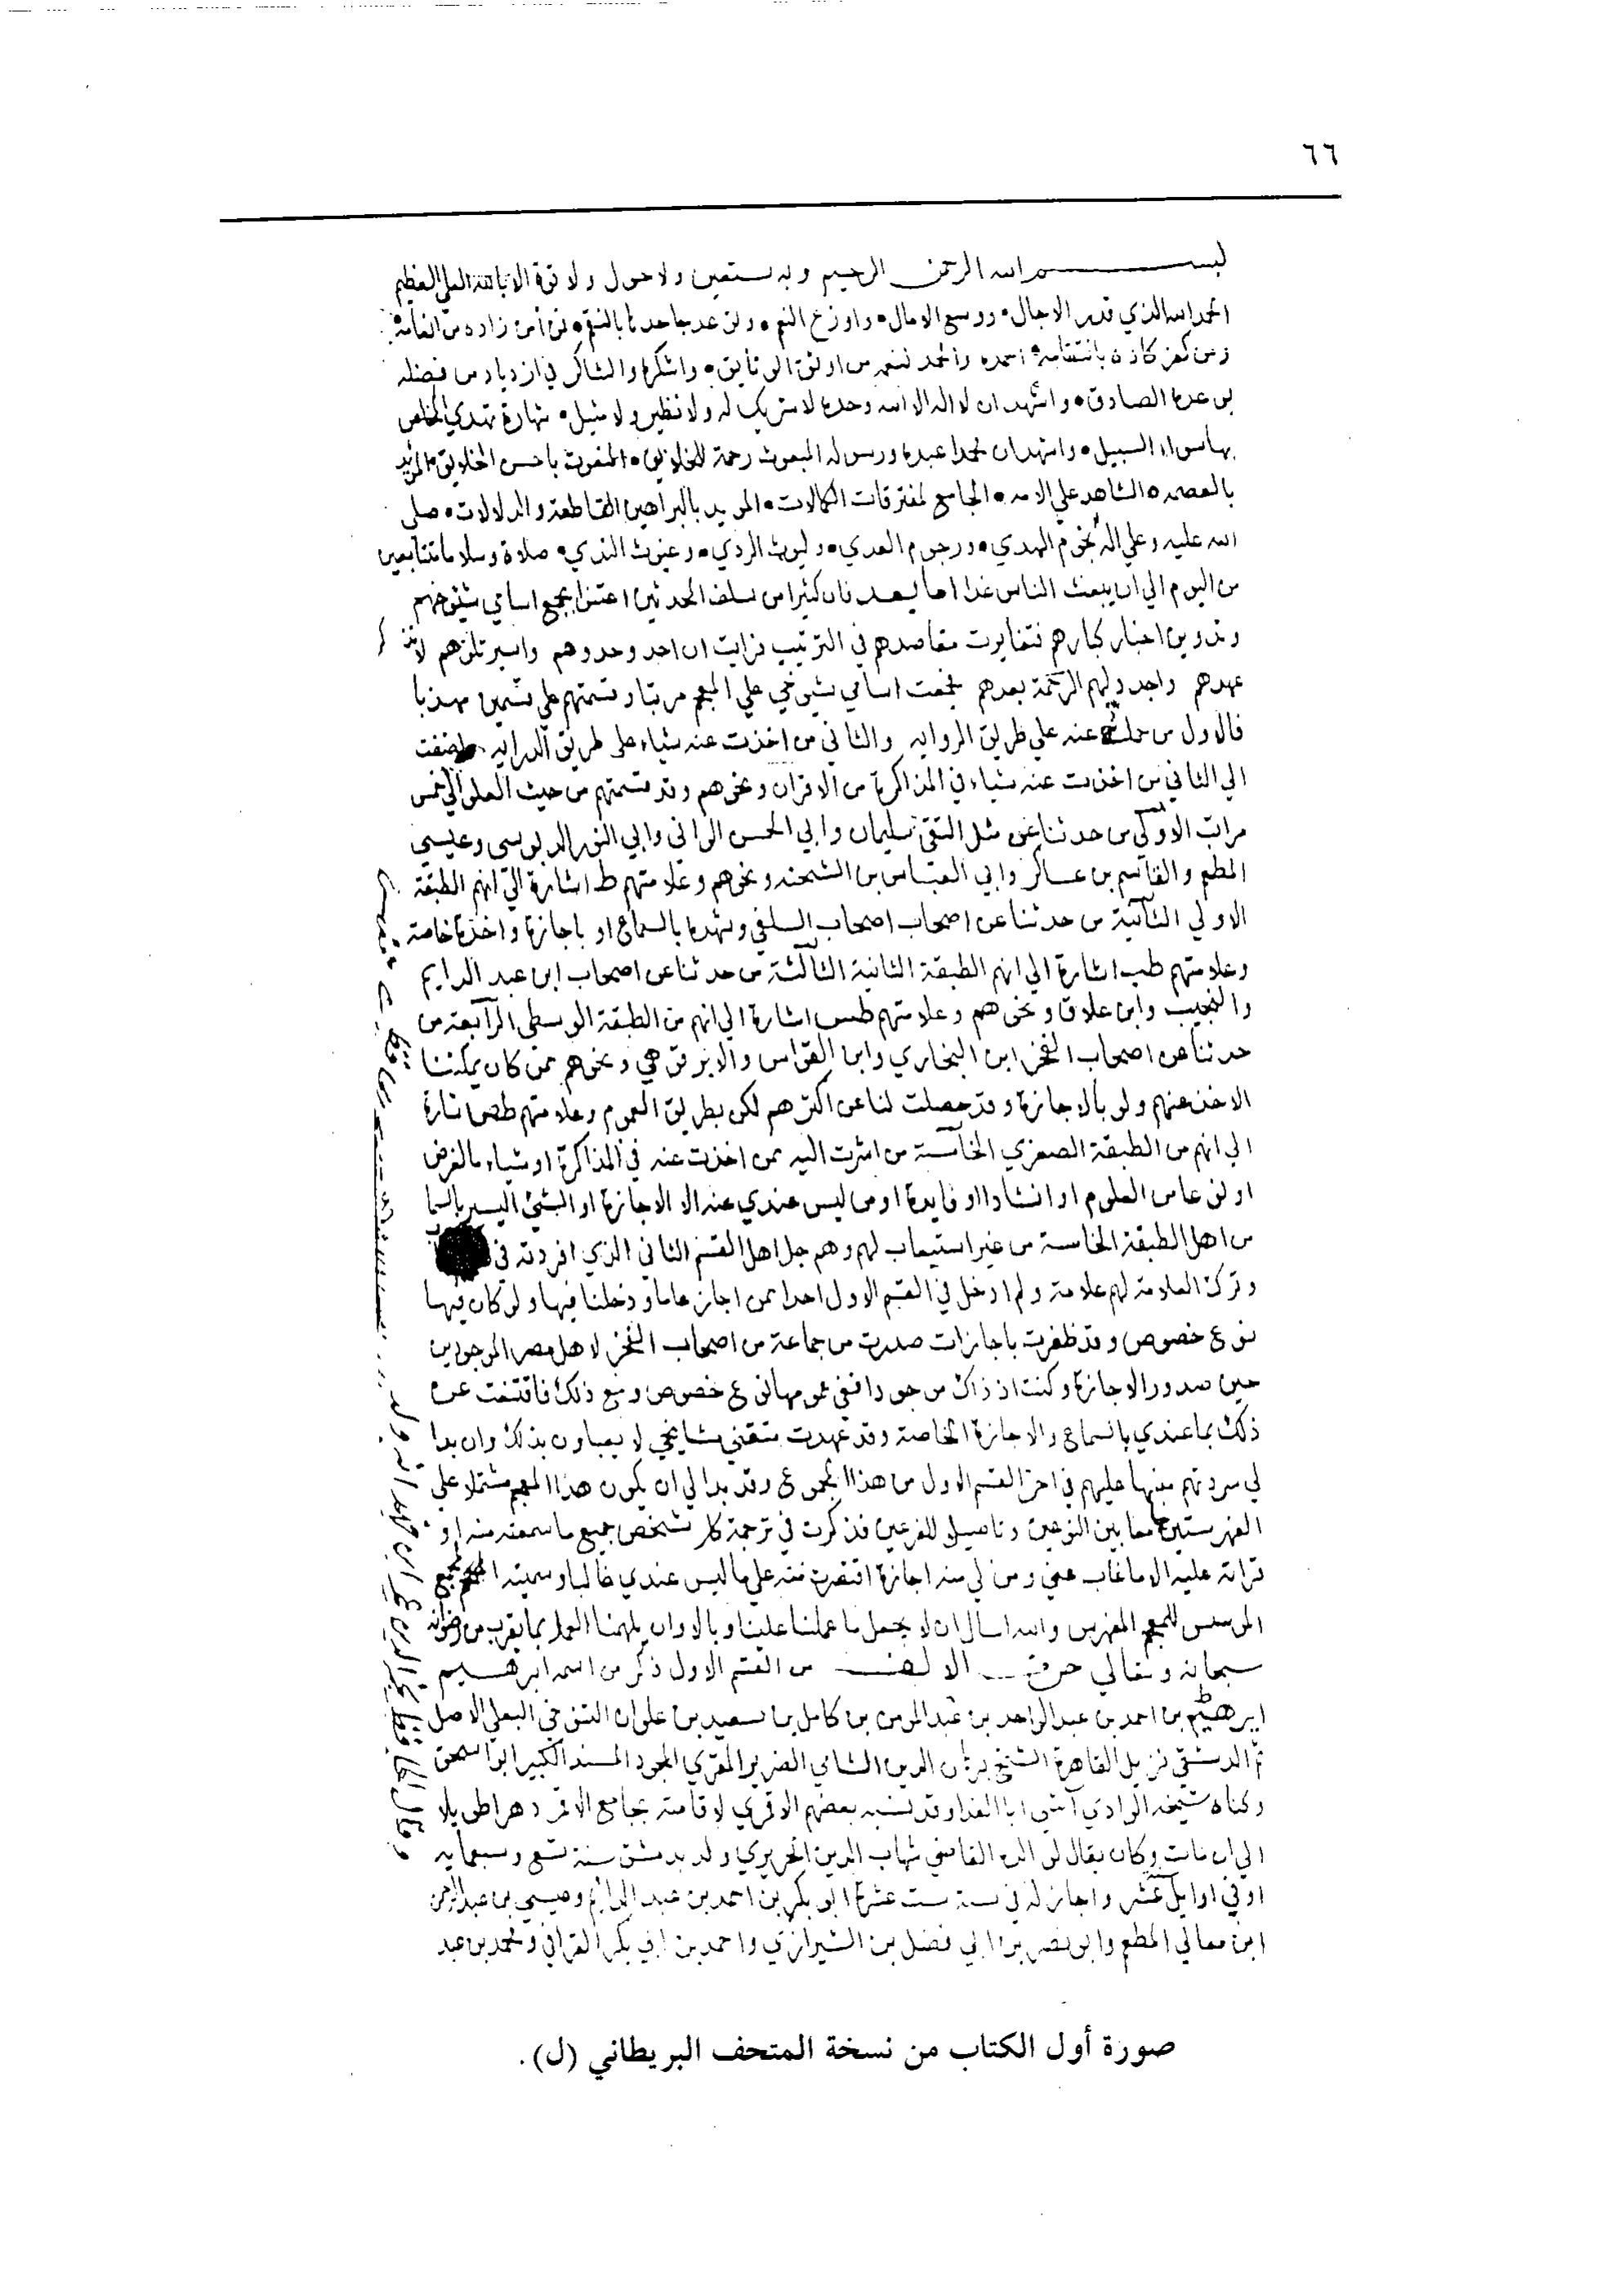 ٦٦
بسم الله الرحمن الرحيم وبه نستعين ولا حول ولا قوة الا بالله العلي العظيم
الحمد لله الذي قدر الاجال ووسع الامال واوزع النعم وتوعد جاحدها بالنقم فمن امن زاده من انعامه
ومن كفر كاده بانتقامه احمده والحمد لنعمه من اوثق الوثايق واشكره والشاكر في ازدياد من فضله
بوعده الصادق واشهد ان لا اله الا الله وحده لا شريك له ولا نظير ولا مثيل شهادة تهدي المخلص
بها سواء السبيل واشهدان محمدا عبده ورسوله المبعوث رحمة للخلايق المنعوت باحسن الخلايق المؤيد
بالعصمه الشاهد علي الامه الجامع لمفترقات الكمالات المويد بالبراهين القاطعة والدلالات صلى
الله عليه وعلي اله نجوم الهدي ورجوم العدي وليوث الردي وغيوث الندي صلاة وسلاما متتابعين
من اليوم الي ان يبعث الناس غدا اما بعد فان كثيرا من سلف المحدثين اعتنوا بجمع اسامي شيوخهم
وتدوين اخبار كبارهم فتغايرت مقاصدهم في الترتيب فرايت ان احذو حذوهم واسير تلوهم لاتذكر
عهدهم واجدد لهم الرحمة بعدهم فجمعت اسامي شيوخي علي المعجم مرتبا وقسمتهم علي قسمين مهذبا
فالاول من حملت عنه علي طريق الروايه والثاني من اخذت عنه شياء على طريق الدرايه واضفت
الي الثاني من اخذت عنه شياء في المذاكرة من الاقران ونحوهم وقد قسمتهم من حيث العلو الي خمس
مراتب الاولي من حدثنا عن مثل التقي سليمان وابي الحسن الواني وابي النون الدبوسى وعيسى
المطعم والقاسم بن عساكر وابي العباس بن الشحنه ونحوهم وعلامتهم ط اشارة الي انهم الطبقة
الاولي الثانية من حدثنا عن اصحاب اصحاب السلفي وشهده بالسماع او باجازة واخذة خاصة
وعلامتهم طب اشارة الي انهم الطبقة الثانية الثالثة من حدثنا عن اصحاب ابن عبد الدايم
والنجيب وابن علاق ونحوهم وعلامتهم طس اشارة الي انهم من الطبقة الوسطى الرابعة من
حدثنا عن اصحاب الفخر ابن البخاري وابن القواس والابرقوهي ونحوهم ممن كان يمكننا
الاخذ عنهم ولو بالاجازة وقد حصلت لنا عن اكثرهم لكن بطريق العموم وعلامتهم طص اشارة
الي انهم من الطبقة الصغري الخامسة من اشرت اليه ممن اخذت عنه في المذاكرة او شياء بالعرض
او نوعا من العلوم او انشادا او فايدة او من ليس عندي عنه الا الاجازة او الشئ اليسير بالسما
من اهل الطبقة الخامسة من غير استيعاب لهم وهم جل اهل القسم الثاني الذي افردته في
وترك العلامة لهم علامة ولم ادخل في القسم الاول احدا ممن اجاز عاما ودخلنا فيها ولو كان فيها
نوع خصوص وقد ظفرت باجازات صدرت من جماعة من اصحاب الفخر لاهل مصر الموجودين
حين صدور الاجازة وكنت اذ ذاك موجودا ففي عمومها نوع خصوص ومع ذلك فاقتنعت عن
ذلك بما عندي بالسماع والاجازة الخاصة وقد عهدت متقني مشايخي لا يعباون بذلك وان بدا
لي سردتهم منبها عليهم في اخر القسم الاول من هذا المجموع وقد بدا لي ان يكون هذا المعجم مشتملا على
الفهرستين جامعا بين النوعين وتاصيل للفرعين فذكرت في ترجمة كل شخص جميع ما سمعته منه او
قراته عليه الا ما غاب عني ومن لي منه اجازة اقتصرت منه علي ما ليس عندي غالبا وسميته المجمع
الموسس للمعجم المفهرس والله اسال ان لا يجعل ما عملنا علينا وبالا وان يلهمنا العمل بما يقرب من رضوانه
سبحانه وتعالي حرف الالف من القسم الاول ذكر من اسمه ابرهيم
ابرهيم بن احمد بن عبد الواحد بن عبد المومن بن كامل بن سعيد بن علوان التنوخي البعلي الاصل
ثم الدمشقي نزيل القاهرة الشيخ برهان الدين الشامي الضرير المقري المجود المسند الكبير ابو اسحق
وكناه شيخه الوادي آشي ابا الفدا وقد نسبه بعضهم الاقمري لاقامته بجامع الاقمر دهرا طويلا
الي ان مات وكان يقال لوالده القاضي شهاب الدين الحريري ولد بدمشق سنة تسع وسبعمايه
او في اوايل عشر واجاز له في سنة ست عشرة ابو بكر بن احمد بن عبد الدايم وعيسي بن عبد الرحمن
ابن معالي المطعم وابو نصر بن ابي فضل بن الشيرازي واحمد بن ابي بكر القرافي ومحمد بن عبد
صورة أول الكتاب من نسخة المتحف البريطاني (ل).